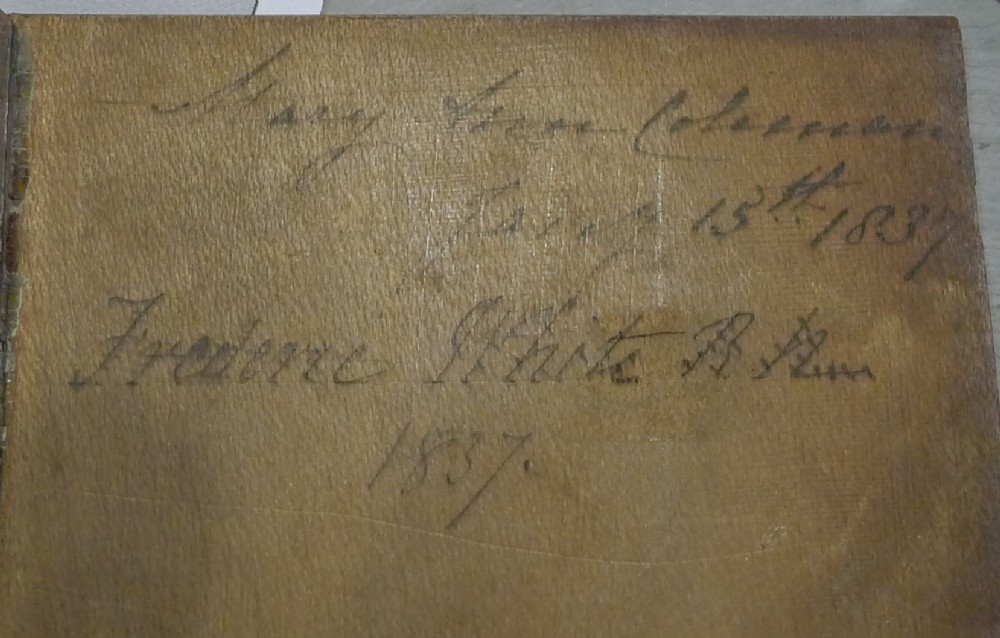 Mary Ann Coleman
15th 1837
Frederic White
1837.